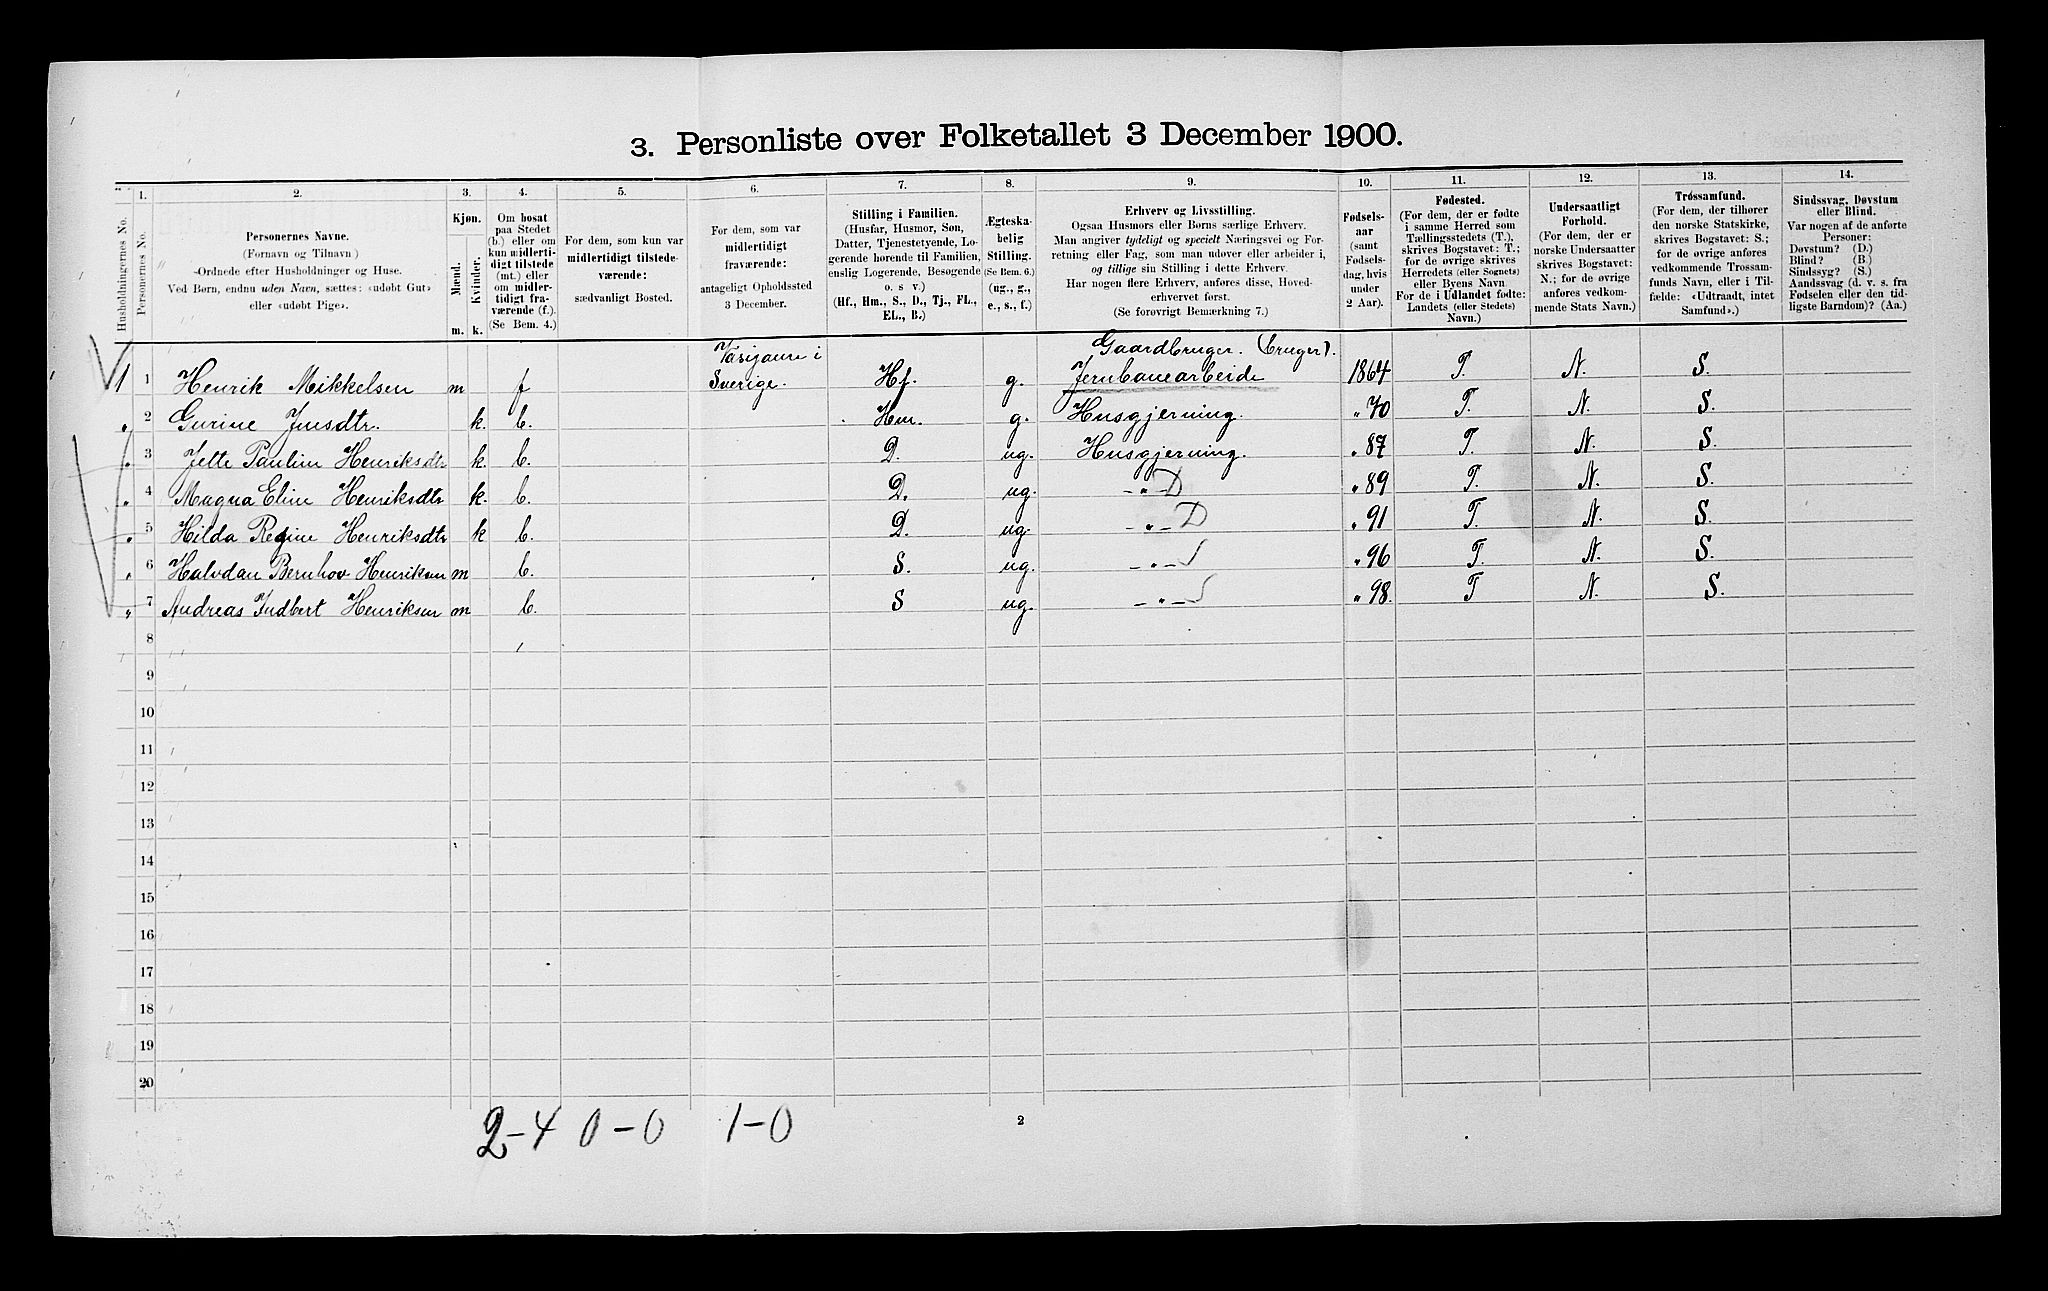 3. Personliste over Folketallet 3 December 1900.
Husholdningernes No.
1.
Personernes No.
2.
Personernes Navne.
(Fornavn og Tilnavn)
Ordnede efter Husholdninger og Huse.
Ved Børn, endnu uden Navn, sættes: «udøbt Gut»
eller «udøbt Pige».
3.
Kjøn.
Mænd.
Kvinder.
m. k.
4.
Om bosat
paa Stedet
(b.) eller om
kun midlerti-
digt tilstede
(mt.) eller
om midler-
tidigt fra-
værende (f.).
(Se Bem. 4.)
5.
For dem, som kun var
midlertidigt tilstede-
værende:
sædvanligt Bosted.
6.
For dem, som var
midlertidigt
fraværende:
antageligt Opholdssted
3 December.
7.
Stilling i Familien.
(Husfar, Husmor, Søn,
Datter, Tjenestetyende, Lo-
gerende hørende til Familien,
enslig Logerende, Besøgende
o. s v.)
(Hf., Hm., S., D., Tj., FL.,
EL., B.)
8.
Ægteska-
belig
Stilling.
(Se Bem. 6.)
(ug., g.,
e., s., f.)
9.
Erhverv og Livsstilling.
Ogsaa Husmors eller Børns særlige Erhverv.
Man angiver tydeligt og specielt Næringsvei og For-
retning eller Fag, som man udøver eller arbeider i,
og tillige sin Stilling i dette Erhverv.
Har nogen flere Erhverv, anføres disse, Hoved-
erhvervet først.
(Se forøvrigt Bemærkning 7.)
10.
Fødsels-
aar
(samt
Fødsels-
dag, hvis
under
2 Aar).
11.
Fødested.
(For dem, der er fødte
i samme Herred som
Tællingsstedets (T.),
skrives Bogstavet: T.;
for de øvrige skrives
Herredets (eller Sognets)
eller Byens Navn
For de i Udlandet fødte:
Landets (eller Stedets)
Navn.)
12.
Undersaatligt
Forhold.
(For dem, der er
norske Undersaatter
skrives Bogstavet:
N.; for de øvrige
anføres vedkom-
mende Stats Navn.)
13.
Trossamfund.
(For dem, der tilhører
den norske Statskirke,
skrives Bogstavet: S.;
for de øvrige anføres
vedkommende Trossam-
funds Navn, eller i Til-
fælde: «Udtraadt, intet
Samfund».)
14.
Sindssvag, Døvstum
eller Blind.
Var nogen af de anførte
Personer:
Døvstum? (D.)
Blind? (B.)
Sindssyg? (S.)
Aandssvag (d. v. s. fra
Fødselen eller den tid-
ligste Barndom)? (Aa.)
Vasijaure i Gaardbruger. (bruger).
1 1 Henrik Mikkelsen m f Sverige. Hf. g. Jernbanearbeide 1864 T. N. S.
" 2 Gurine Jensdtr. k. b. Hm. g. Husgjerning. " 70 T. N. S.
" 3 Jette Paulin Henriksdtr k. b. D. ug. Husgjerning. " 87 T. N. S.
" 4 Magna Eline Henriksdtr k. b. D. ug. – " – D " 89 T. N. S.
" 5 Hilda Regine Henriksdtr k b. D. ug. – " – D " 91 T. N. S.
" 6 Halvdan Bernhov Henriksen m b. S. ug. – " – S " 96 T. N. S.
" 7 Andreas Indbert Henriksen m b. S ug. – " – S " 98. T N. S.
8
9
10
11
12
13
14
15
16
17
18
19
20
2-4 0-0 1-0
2